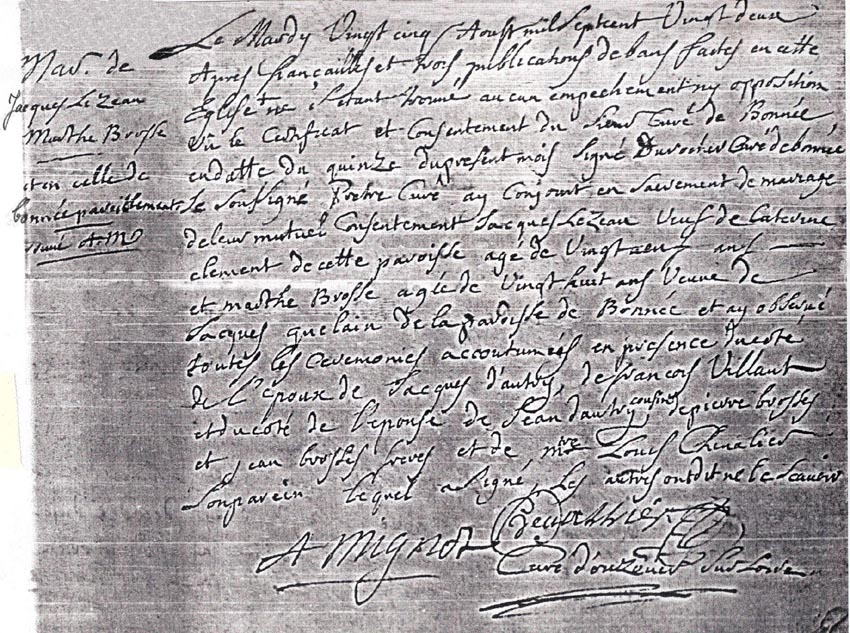 Mar. de
Jacques Lezeau
Marthe Brosse
et en celle de
bonnée pareillement
A. M
Le Mardy Vingt cinq Aoust mil Septcent Vingt deux
Apres fiancailles et trois publications de bans faites en cette
Eglise ne s'etant trouvé aucun empechement ny opposition
vû le Certificat et Consentement du Sieur Curé de Bonnée
en datte du quinze du present mois signé Curé de bonnée
Le Soussigné Pretre Curé ay Conjoint en Sacrement de mariage
de leur mutuel Consentement Jacques Lezeau Veuf de Caterine
clement de cette paroisse agé de Vingt ans
et marthe Brosse agée de Vingt huit ans Veuve de
Jacques quelain de la paroisse de Bonnée et ay observé
toutes les Ceremonies accoutumées en presence du coté
de l'Epoux de Jacques d'autry, de francois Villant
et du coté de l'epouse de Jean dautry cousins, de pierre brosses
et jean brosses freres et de mre Louis Chevalier
Son parein lequel a Signé, Les autres ont dit ne le Scavoir
A Mignot
Curé d'ouzouer Sur Loire